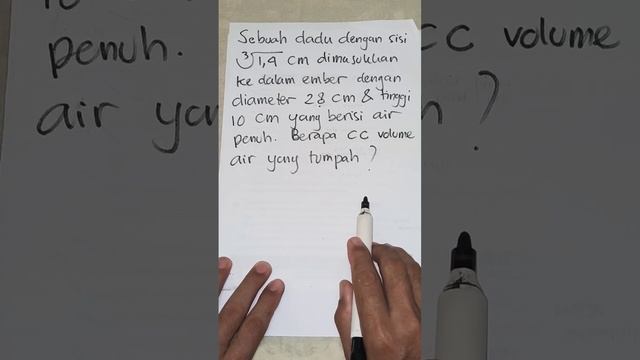 Sebuah dadu dengan sisi
∛1,4 cm dimasukkan
ke dalam ember dengan
diameter 28 cm & tinggi
10 cm yang berisi air
penuh. Berapa CC volume
air yang tumpah ?